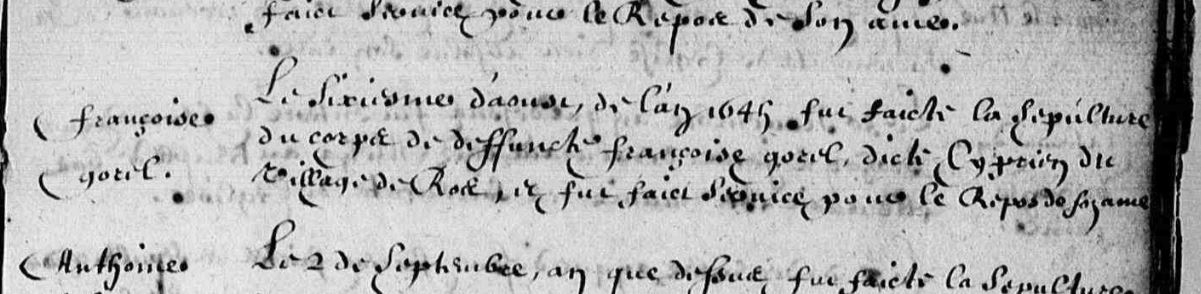 faict service pour le Repos de Son ame.
Le sixiesme d'aoust, de l'an 1645 fut faicte la sepulture
françoise
du corps de deffuncte françoise gorel, dicte Cyprien du
gorel.
Village de Ros, et fut faict service pour le Repos de son ame
Anthoine
Le 2 de Septembre, an que dessus fut faicte la sepulture